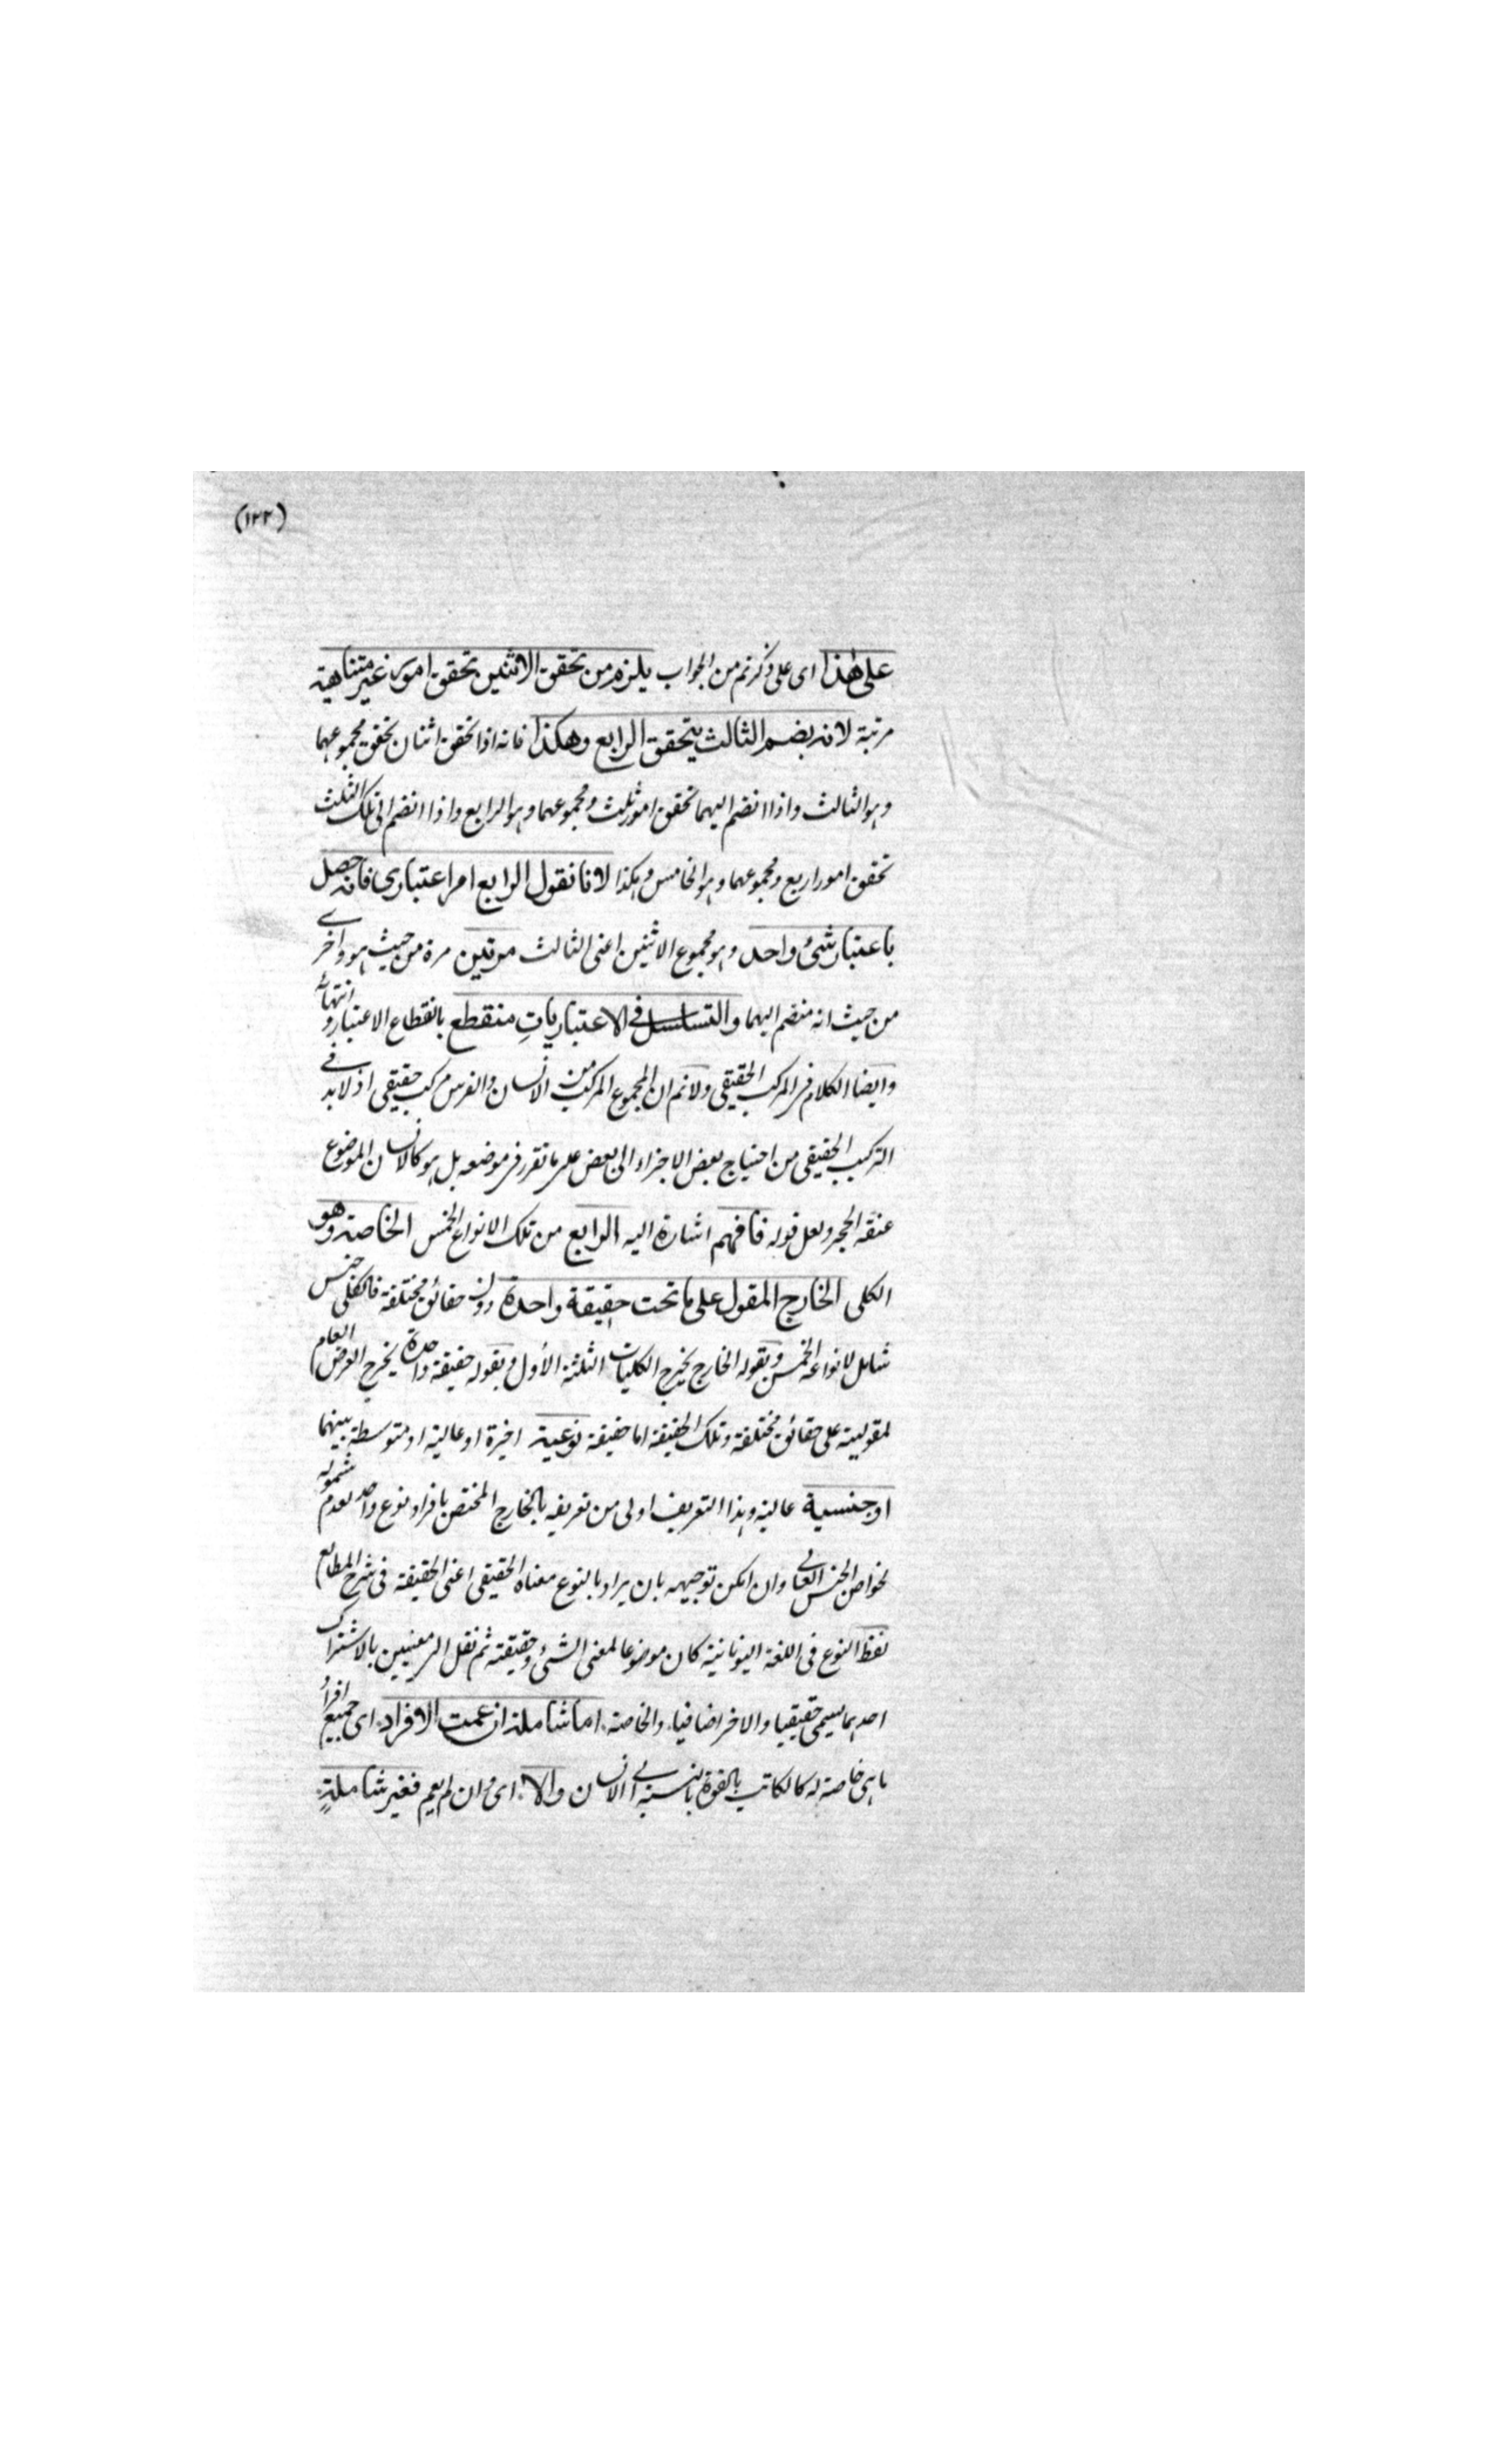 (١٢٢)
على هذا اى على ذكرتم من الجواب يلزم من تحقق الاثنين تحقق امور غير متناهية
مرتبة لانه بضم الثالث يتحقق الرابع وهكذا فانه اذا تحقق اثنان تحقق مجموعهما
وهو الثالث واذا انضم اليهما تحقق امور ثلث ومجموعهما وهو الرابع واذا انضم الى تلك الثلث
تحقق امور اربع ومجموعهما وهو الخامس وهكذا لانا نقول الرابع امر اعتبارى فانه حصل
باعتبار شئ واحد وهو مجموع الاثنين اعنى الثالث مرتين مرة من حيث هو واخرے
من حيث انه منضم اليهما والتسلسل فى الاعتباريات منقطع بانقطاع الاعتبار وانتهائه
وايضا الكلام فى المركب الحقيقى ولانم ان المجموع المركب من الانسان والفرس مركب حقيقى اذ لابد فے
التركيب الحقيقى من احتياج بعض الاجزاء الى بعض على ما تقرر فى موضعه بل هو كالانسان الموضوع
عنقه الحجر ولعل قوله فافهم اشارة اليه الرابع من تلك الانواع الخمس الخاصة وهو
الكلى الخارج المقول على ما تحت حقيقة واحدة دون حقائق مختلفة فالكلى جنس
شامل لانواعه الخمس وبقوله الخارج يخرج الكليات الثلثة الأول وبقوله حقيقة واحدة يخرج العرض العام
لمقوليته على حقائق مختلفة وتلك الحقيقة اما حقيقة نوعية اخيرة او عالية او متوسطة بينهما
او جنسية عالية وهذا التعريف اولى من تعريفه بالخارج المختص بافراد نوع واحد لعدم شموله
لخواص الجنس العالى وان امكن توجيهه بان يراد بالنوع معناه الحقيقى اعنى الحقيقة فى شرح المطالع
لفظ النوع فى اللغة اليونانية كان موضوعا لمعنى الشئ وحقيقته ثم نقل الى معنيين بالاشتراك
احدهما يسمى حقيقيا والاخر اضافيا والخاصة اما شاملة ان عمت الافراد اى جميع افراد
ما هى خاصة له كالكاتب بالقوة بالنسبة الى الانسان والا اى وان لم يعم فغير شاملةٍ